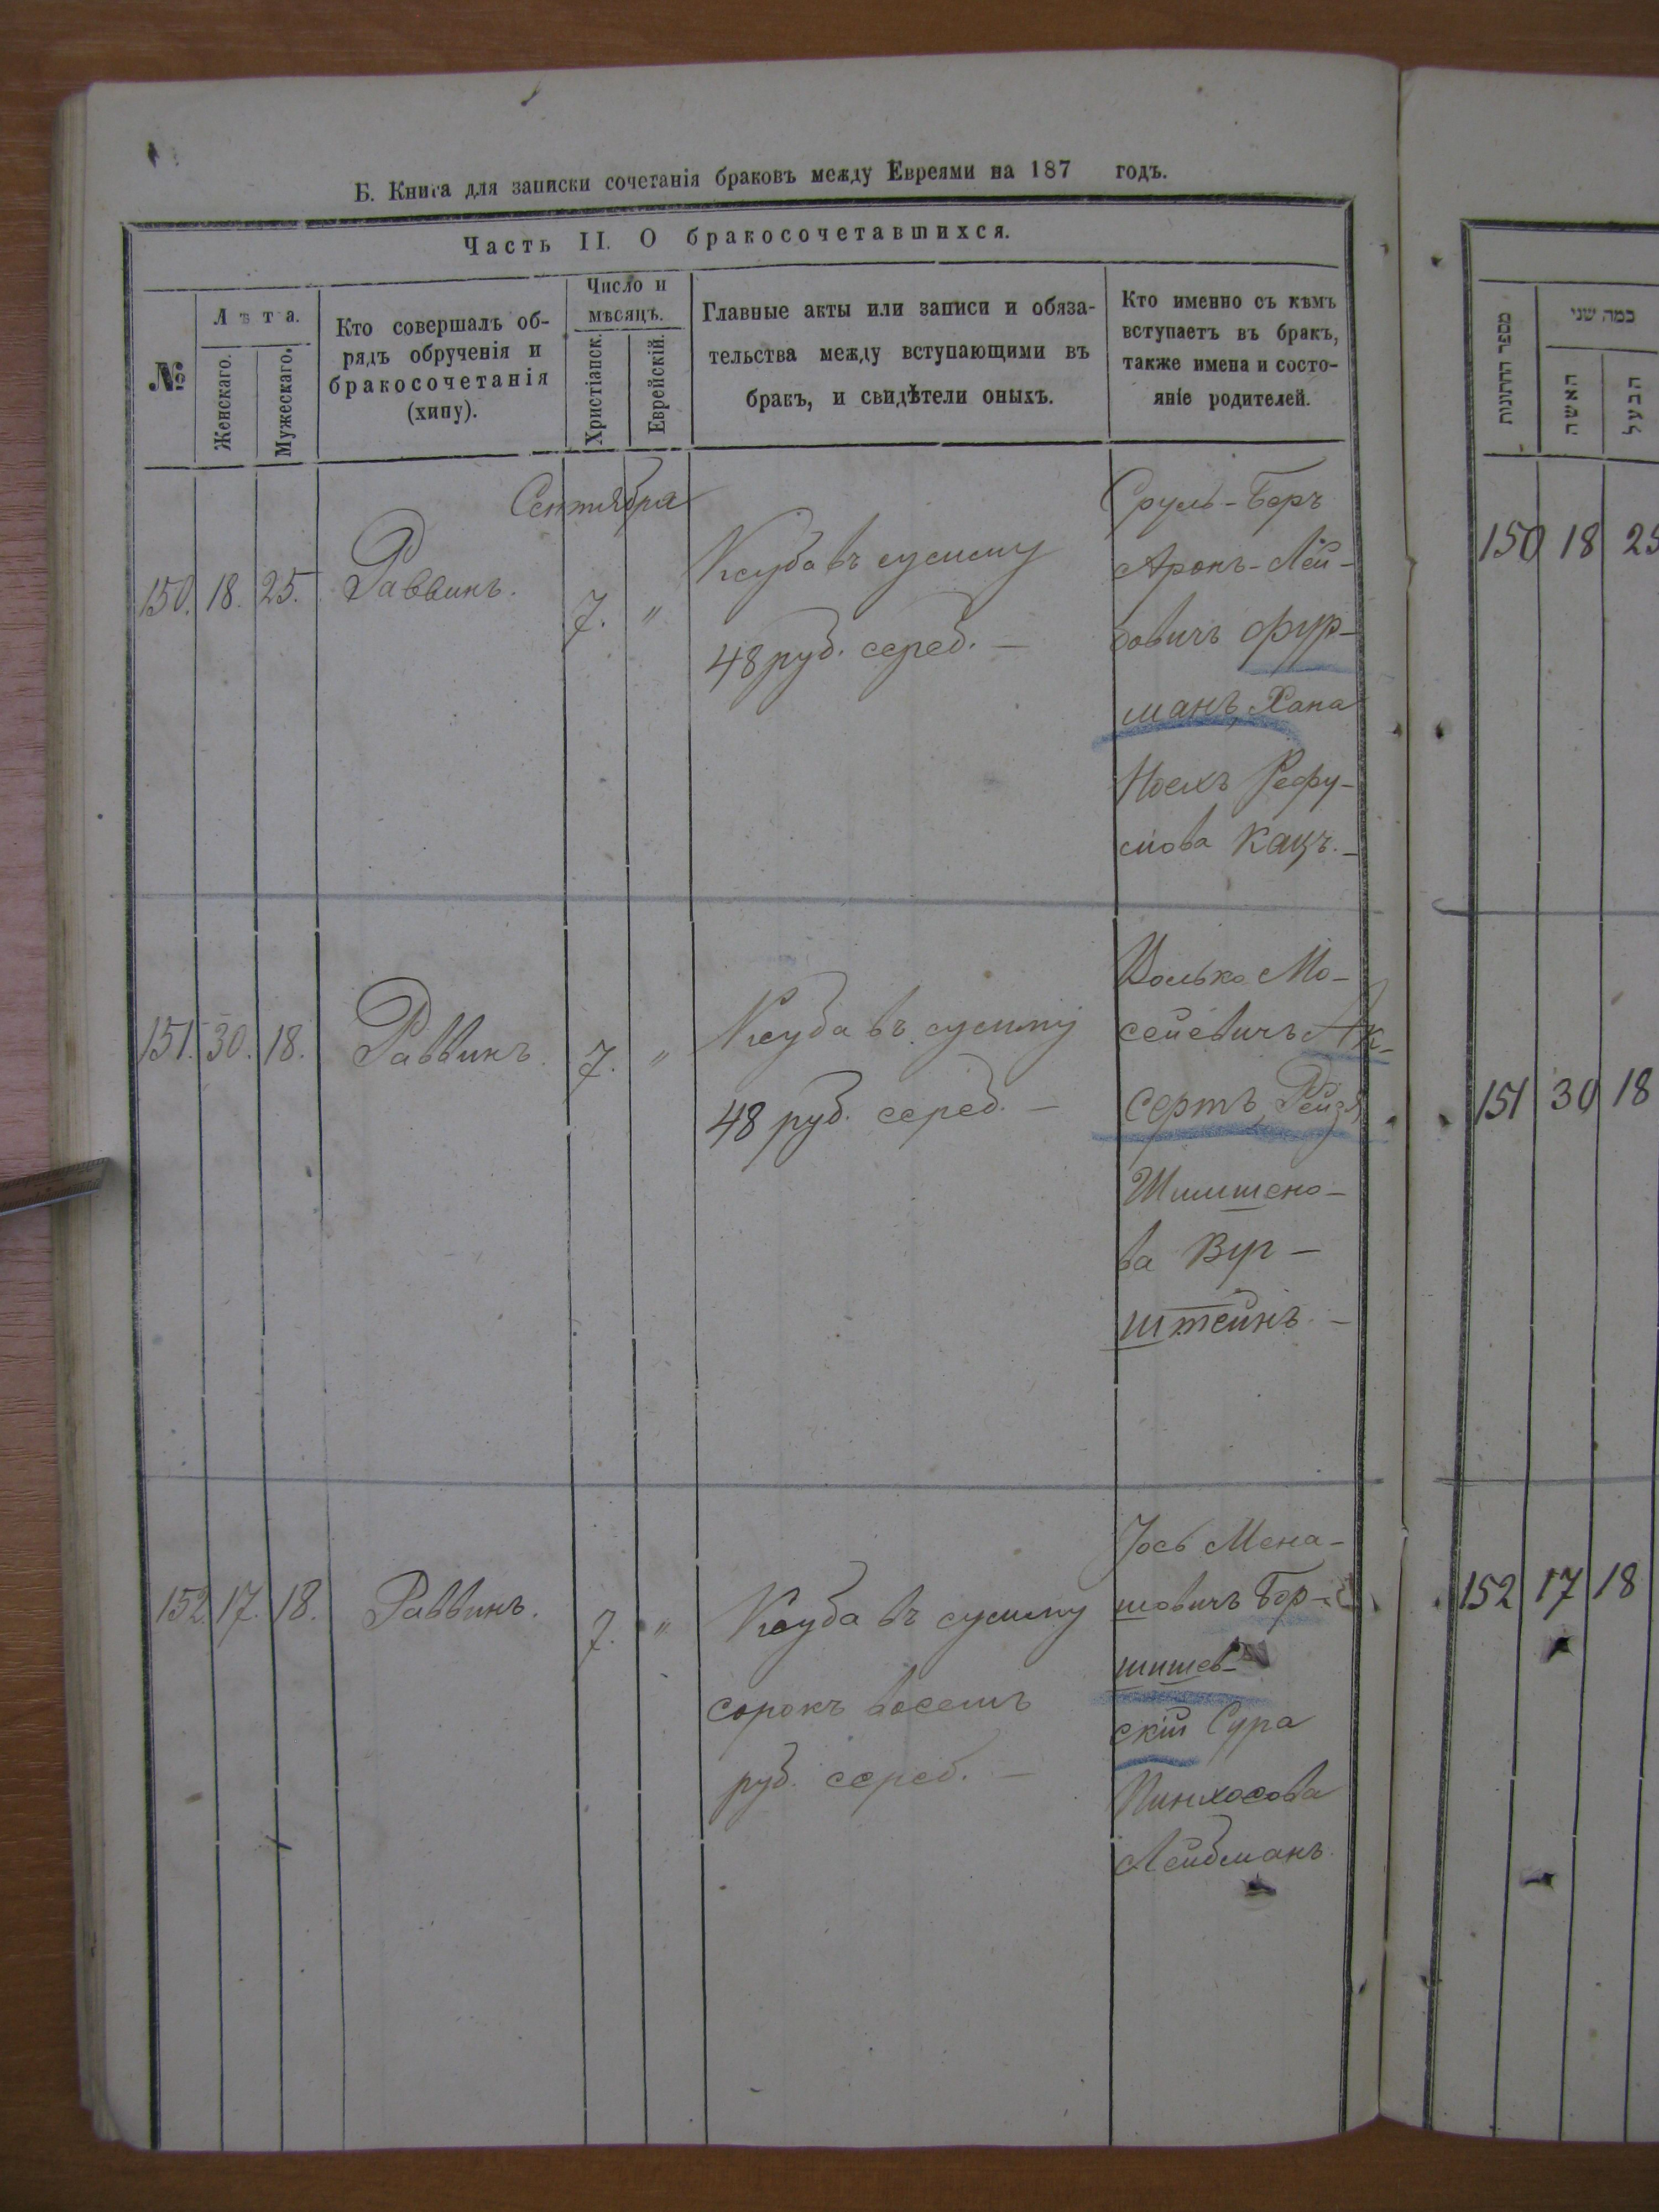 Б. Книга для записки сочетанія браковъ между Евреями на 187 годъ.
Часть II. О бракосочетавшихся.
№
Лѣта.
Женскаго.
Мужескаго.
Кто совершалъ об-
рядъ обрученія и
бракосочетанія
(хипу).
Число и
мѣсяцъ.
Христіанск.
Еврейскій.
Главные акты или записи и обяза-
тельства между вступающими въ
бракъ, и свидѣтели оныхъ.
Кто именно съ кѣмъ
вступаетъ въ бракъ,
также имена и состо-
яніе родителей.
Сентября
150. 18. 25. Раввинъ. 7. "
Ксуба въ сумму
48 руб. сереб. —
Сруль-Беръ
Аронъ-Лей-
бовичъ Фур-
манъ, Хана
Ноехъ
Кацъ. —
151. 30. 18. Раввинъ. 7. "
Ксуба въ сумму
48 руб. сереб. —
Волько Мо-
сейевичъ Ак-
сертъ, Рейзя
ва Вуг-
штейнъ. —
152. 17. 18. Раввинъ. 7. "
Ксуба въ сумму
сорокъ восемъ
руб. сереб. —
Іось Мена-
шовичъ Бер-
шишев-
скій Сура
Пинхосова
Лейбманъ.
מספר החתונות
כמה שני
האשה
הבעל
150 18 25
151 30 18
152 17 18